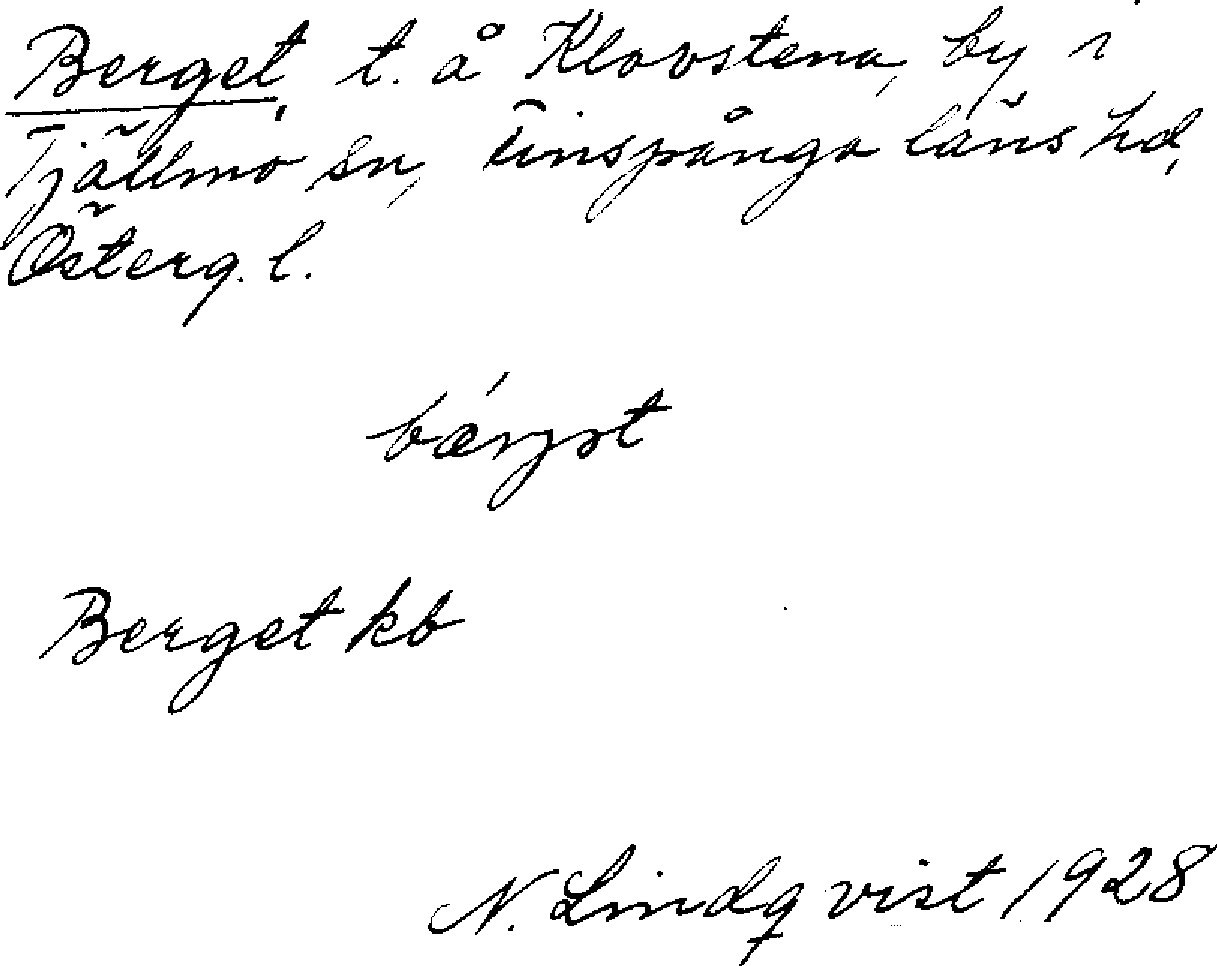 Berget, t. å Klovstena, by i
Tjällmo sn, Finspånga läns hd,
Österg. l.
bærjət
Berget kb
N. Lindqvist 1928